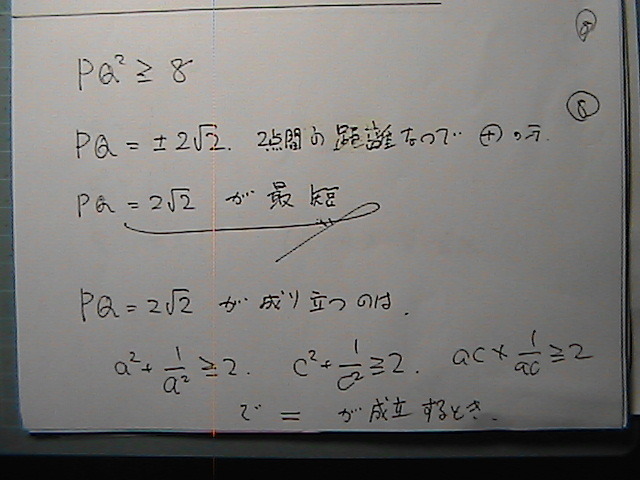 ⑧
PQ² ≥ 8
⑧
PQ = ±2√2. 2点間の距離なので ⊕のみ
PQ = 2√2 が最短
PQ = 2√2 が成り立つのは.
a² + 1/a² ≧ 2. c² + 1/c² ≧ 2. ac + 1/ac ≧ 2
で = が成立するとき.